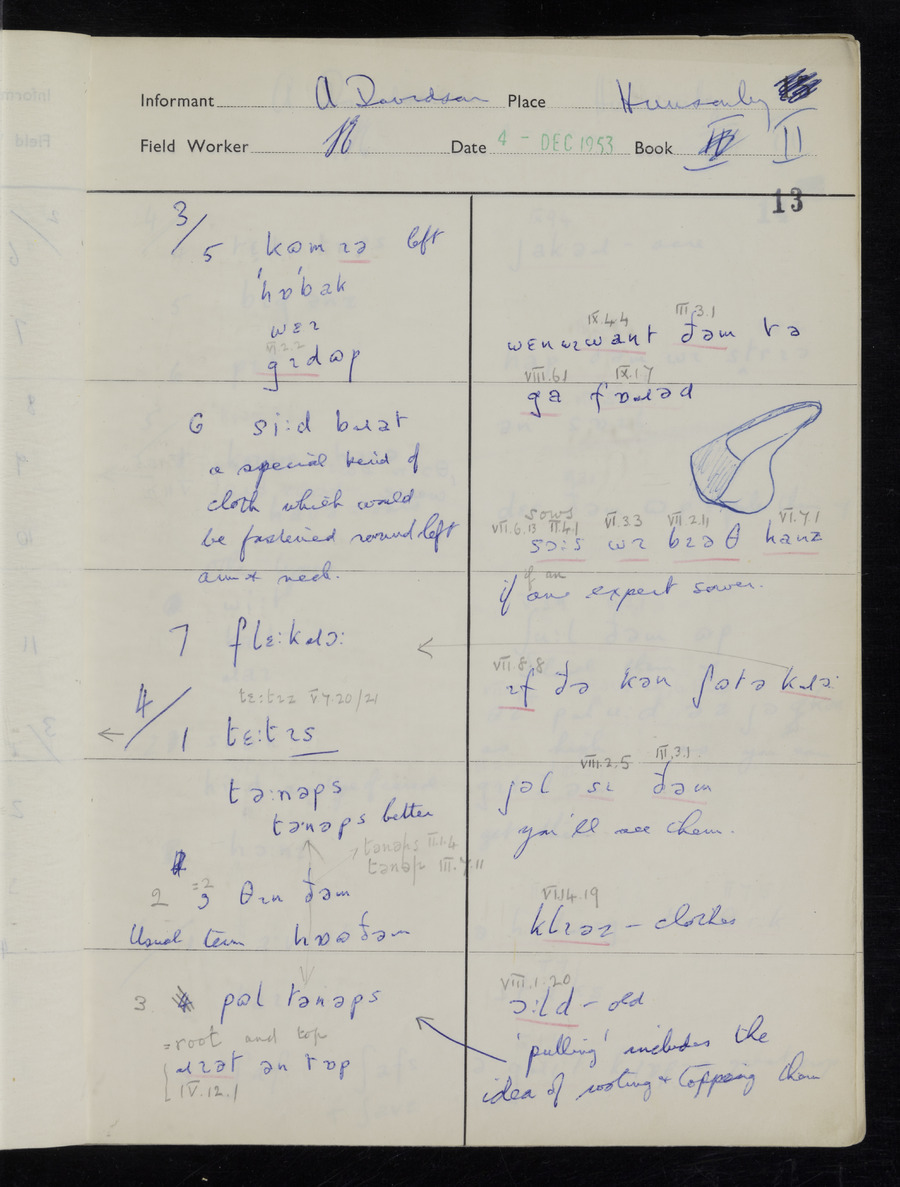 Informant A Davidson Place Hunsonby
Field Worker Date 4 - DEC 1953 Book II
13
3/
5 kɷmɹə left
'hɒ'bak
wɛɪ
VI.2.2
gɪdɷp
6 si:d bɹat
a special kind of
cloth which would
be fastened round left
arm & neck.
7 flɛ:kɹɔ:
4/
tɛ:tɪz V.7.20/21
1 tɛ:tɪs
tə:nəps
tənəps better
tənəps II.1.4
tənəp III.7.11
2 =2 3 θɪn ðəm
Usual term hɒɷ ðəm
3 pɷl tənəps
=root and top
ɹɪət ən tɒp
IV.12.1
IX.4.4 III.3.1
wɛnɪwant ðəm tə
VIII.6.1 IX.1.7
ga fɒɹəd
sows
VII.6.13 II.4.1 VI.3.3 VII.2.11 VI.7.1
sɔ:s wɪ bɪəθ hanz
if an
if one expert sower.
VII.8.8
ɪf ðə kən ʃɷtə kɹɔ:
VIII.2.5 III.3.1
jəl si ðəm
you'll see them.
VI.14.19
klɪəz - clothes
VIII.1.20
ɔ:ld - old
'pulling' includes the
idea of rooting & topping them